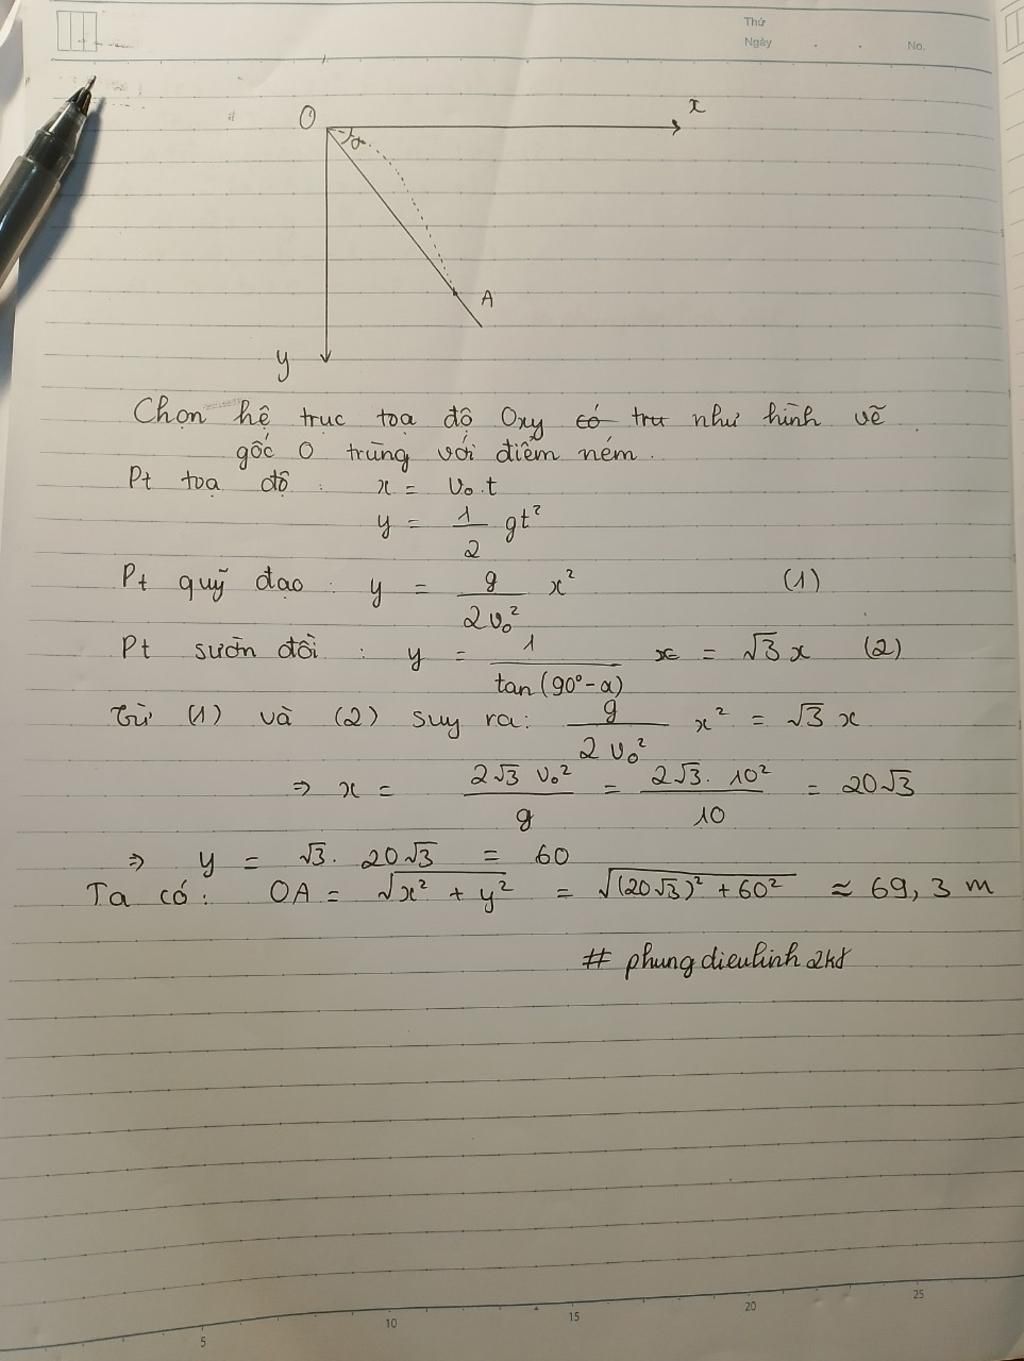 Thứ
Ngày . . No.
O x
α
A
y
Chọn hệ trục toạ độ Oxy có tru như hình vẽ.
gốc O trùng với điểm ném.
Pt toạ độ : x = v₀.t
y = 1/2 gt²
Pt quỹ đạo : y = g/2v₀² x² (1)
Pt sườn đồi : y = 1/tan(90°-α) x = √3x (2)
Từ (1) và (2) suy ra: g/2v₀² x² = √3 x
⇒ x = 2√3 v₀²/g = 2√3. 10²/10 = 20√3
⇒ y = √3. 20√3 = 60
Ta có: OA = √(x² + y²) = √((20√3)² + 60²) ≈ 69,3 m
# phungdieulinh2k8
5 10 15 20 25